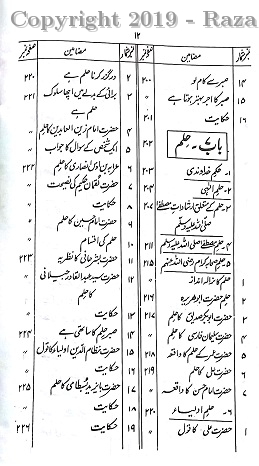 Copyright 2019 - Raza
۱۲
نمبر شمار مضامین صفحہ نمبر
۱۴ صبر سے کام لو ۲۰۰
۱۵ صبر کا اجر بہتر ہوتا ہے 〃
۱۶ حکایت ۲۰۱
باب ۔ حلم ۲۰۲
۱۔ حلم خداوندی ۲۰۳
۲۔ حلم الٰہی ۲۰۴
۳۔ حلم کے متعلق ارشادات مصطفیٰ صلی اللہ علیہ وسلم ۲۰۷
۴۔ حلم مصطفیٰ صلی اللہ علیہ وسلم ۲۱۱
۵۔ حلم صحابہ کرام رضی اللہ عنہم ۲۱۵
۱ حلم کا نرالہ انداز 〃
۲ حلم حضرت ابو ہریرہ ۲۱۶
۳ حضرت ابوبکر صدیق کا حلم ۲۱۷
۴ حضرت سلیمان فارسی کا حلم 〃
۵ حضرت عمر کے حلم کا واقعہ ۲۱۸
۶ حضرت علی کا حلم ۲۱۹
۷ حضرت امام حسن کا واقعہ 〃
۶۔ حلم اولیاء ۲۲۰
۱ حضرت علی کا قول 〃
نمبر شمار مضامین صفحہ نمبر
۲ درگزر کرنا حلم ہے ۲۲۰
۳ برائی کے بدلے میں اچھا سلوک حلم ہے ۲۲۱
۴ حضرت امام زین العابدین کا حلم 〃
۵ ایک شخص کے سوال کا جواب 〃
۶ بن اوس انصاری کا حلم ۲۲۲
۷ حضرت لقمان حکیم کی نصیحت 〃
۸ حکایت 〃
۹ حضرت امام حسین کا حلم 〃
۱۰ حلم کی اقسام 〃
۱۱ حضرت کا نظریہ ۲۲۳
۱۲ حضرت سید عبدالقادر جیلانی کا حلم 〃
۱۳ حکایت 〃
۱۴ صبر حلم کا ساتھی ہے ۲۲۴
۱۵ حضرت نظام الدین اولیاء کا قول 〃
۱۶ حکایت 〃
۱۷ حضرت بایزید بسطامی کا حلم ۲۲۵
۱۸ حکایت 〃
۱۹ حکایت ۲۲۶